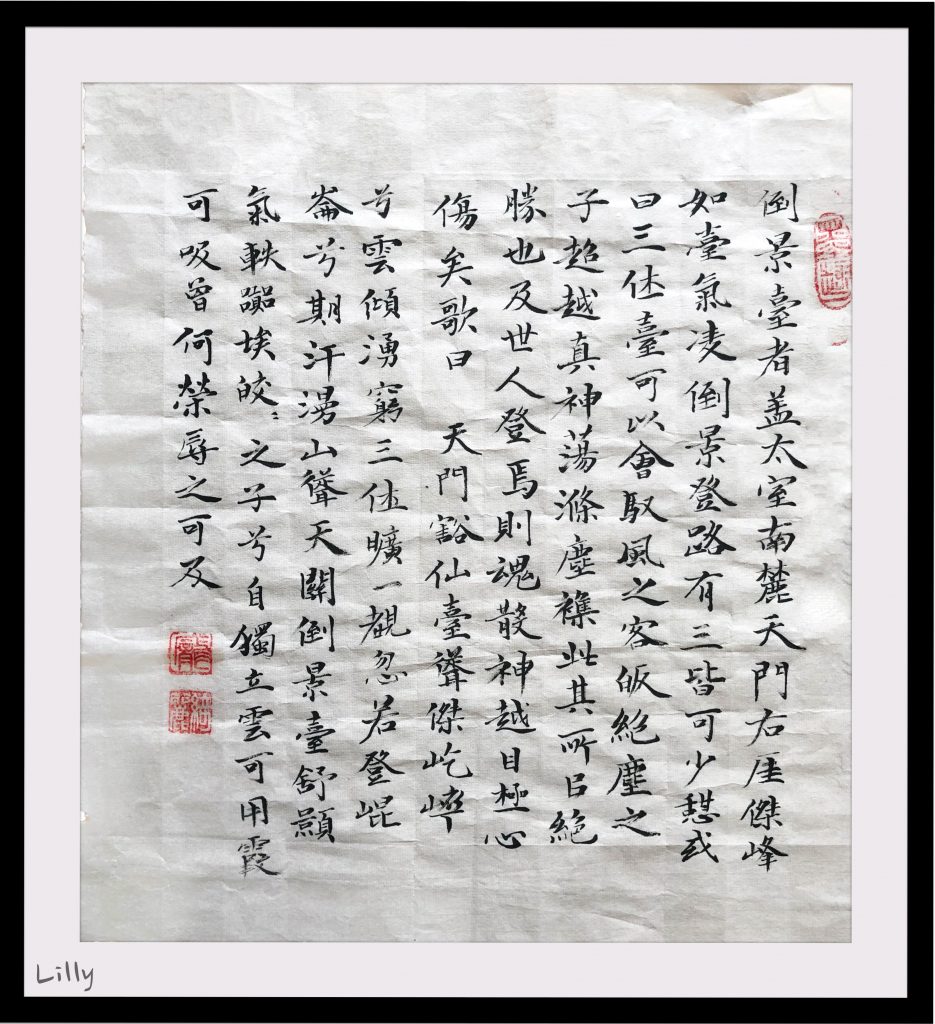 倒景臺者盖太室南麓天門右厓傑峰
如臺氣凌倒景登路有三皆可少憇或
曰三休臺可以會馭風之客皈絶塵之
子超越真神蕩滌塵襟此其所㠯絶
勝也及世人登焉則魂散神越目極心
傷矣歌曰 天門豁仙臺聳傑屹崪
兮雲傾湧窮三休曠一覩忽若登崐
崙兮期汗漫山聳天關倒景臺舒顥
氣軼囂埃皎〻之子兮自獨立雲可用霞
可吸曾何榮辱之可及
Lilly